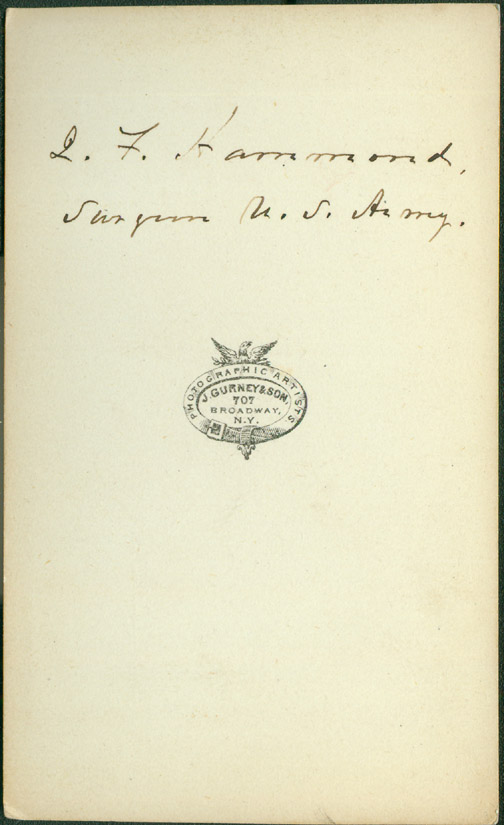 J. F. Hammond,
Surgeon U. S. Army.
PHOTOGRAPHIC ARTISTS
J. GURNEY & SON,
707
BROADWAY,
N.Y.